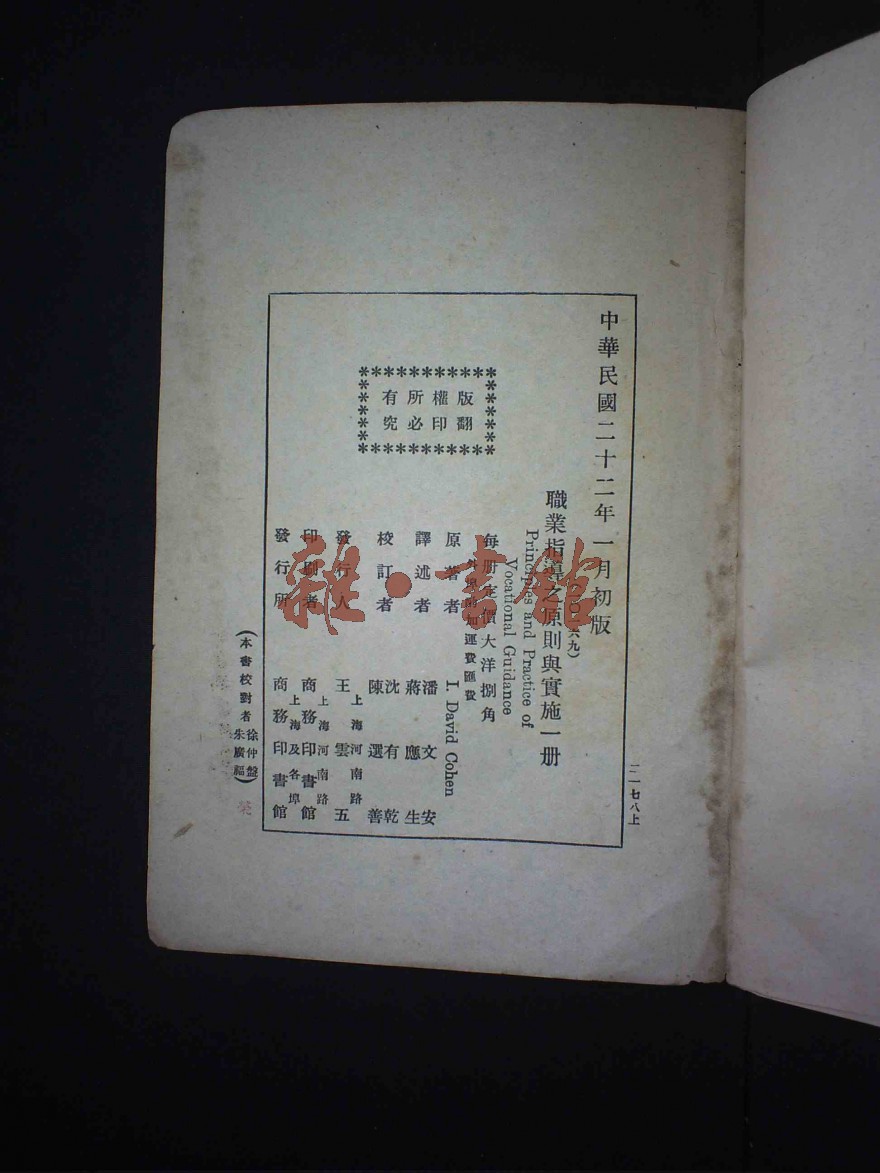 中華民國二十二年一月初版
職業指導之原則與實施一册
Principles and Practice of
Vocational Guidance
每册定價大洋捌角
外埠酌加運費匯費
原著者 I. David Cohen
譯述者 潘文安
蔣應生
校訂者 沈有乾
陳選善
發行人 王雲五
上海河南路
印刷者 商務印書館
上海河南路
發行所 商務印書館
上海及各埠
版權所有
翻印必究
(本書校對者 徐仲盤
朱廣福)
二一七八上
雜·書館